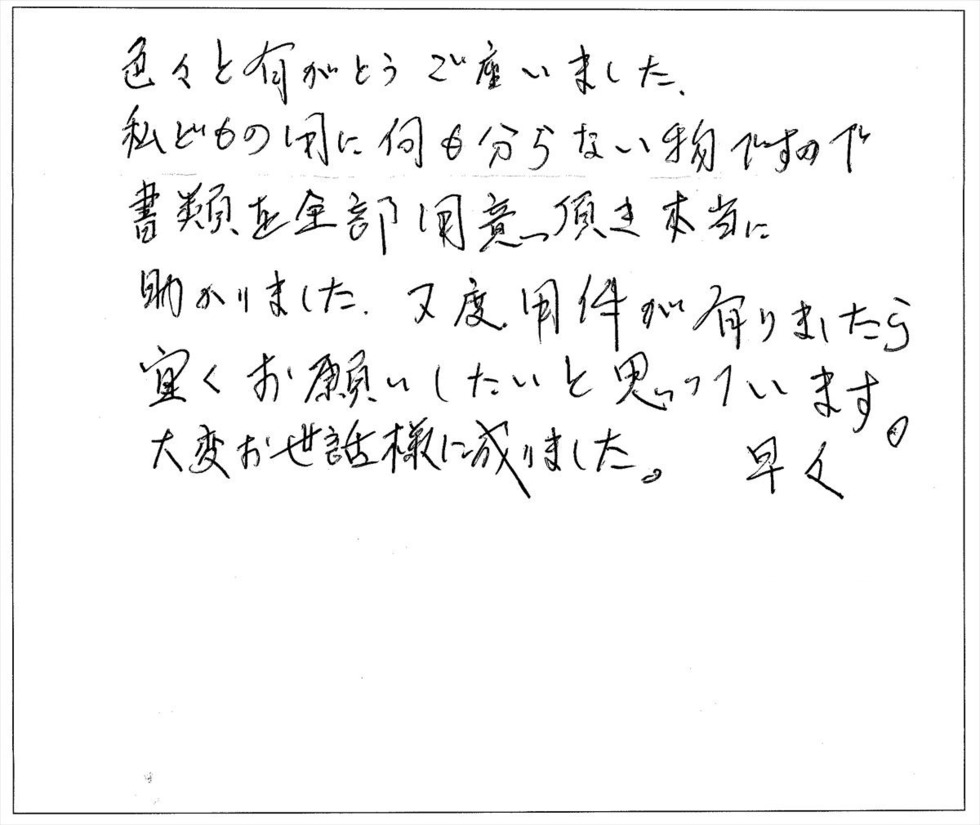 色々と有がとうご座いました.
私どもの用に何も分らない物ですので
書類を全部用意頂き本当に
助かりました. 又度用件が有りましたら
宜くお願いしたいと思っています。
大変お世話様に成りました。 早々